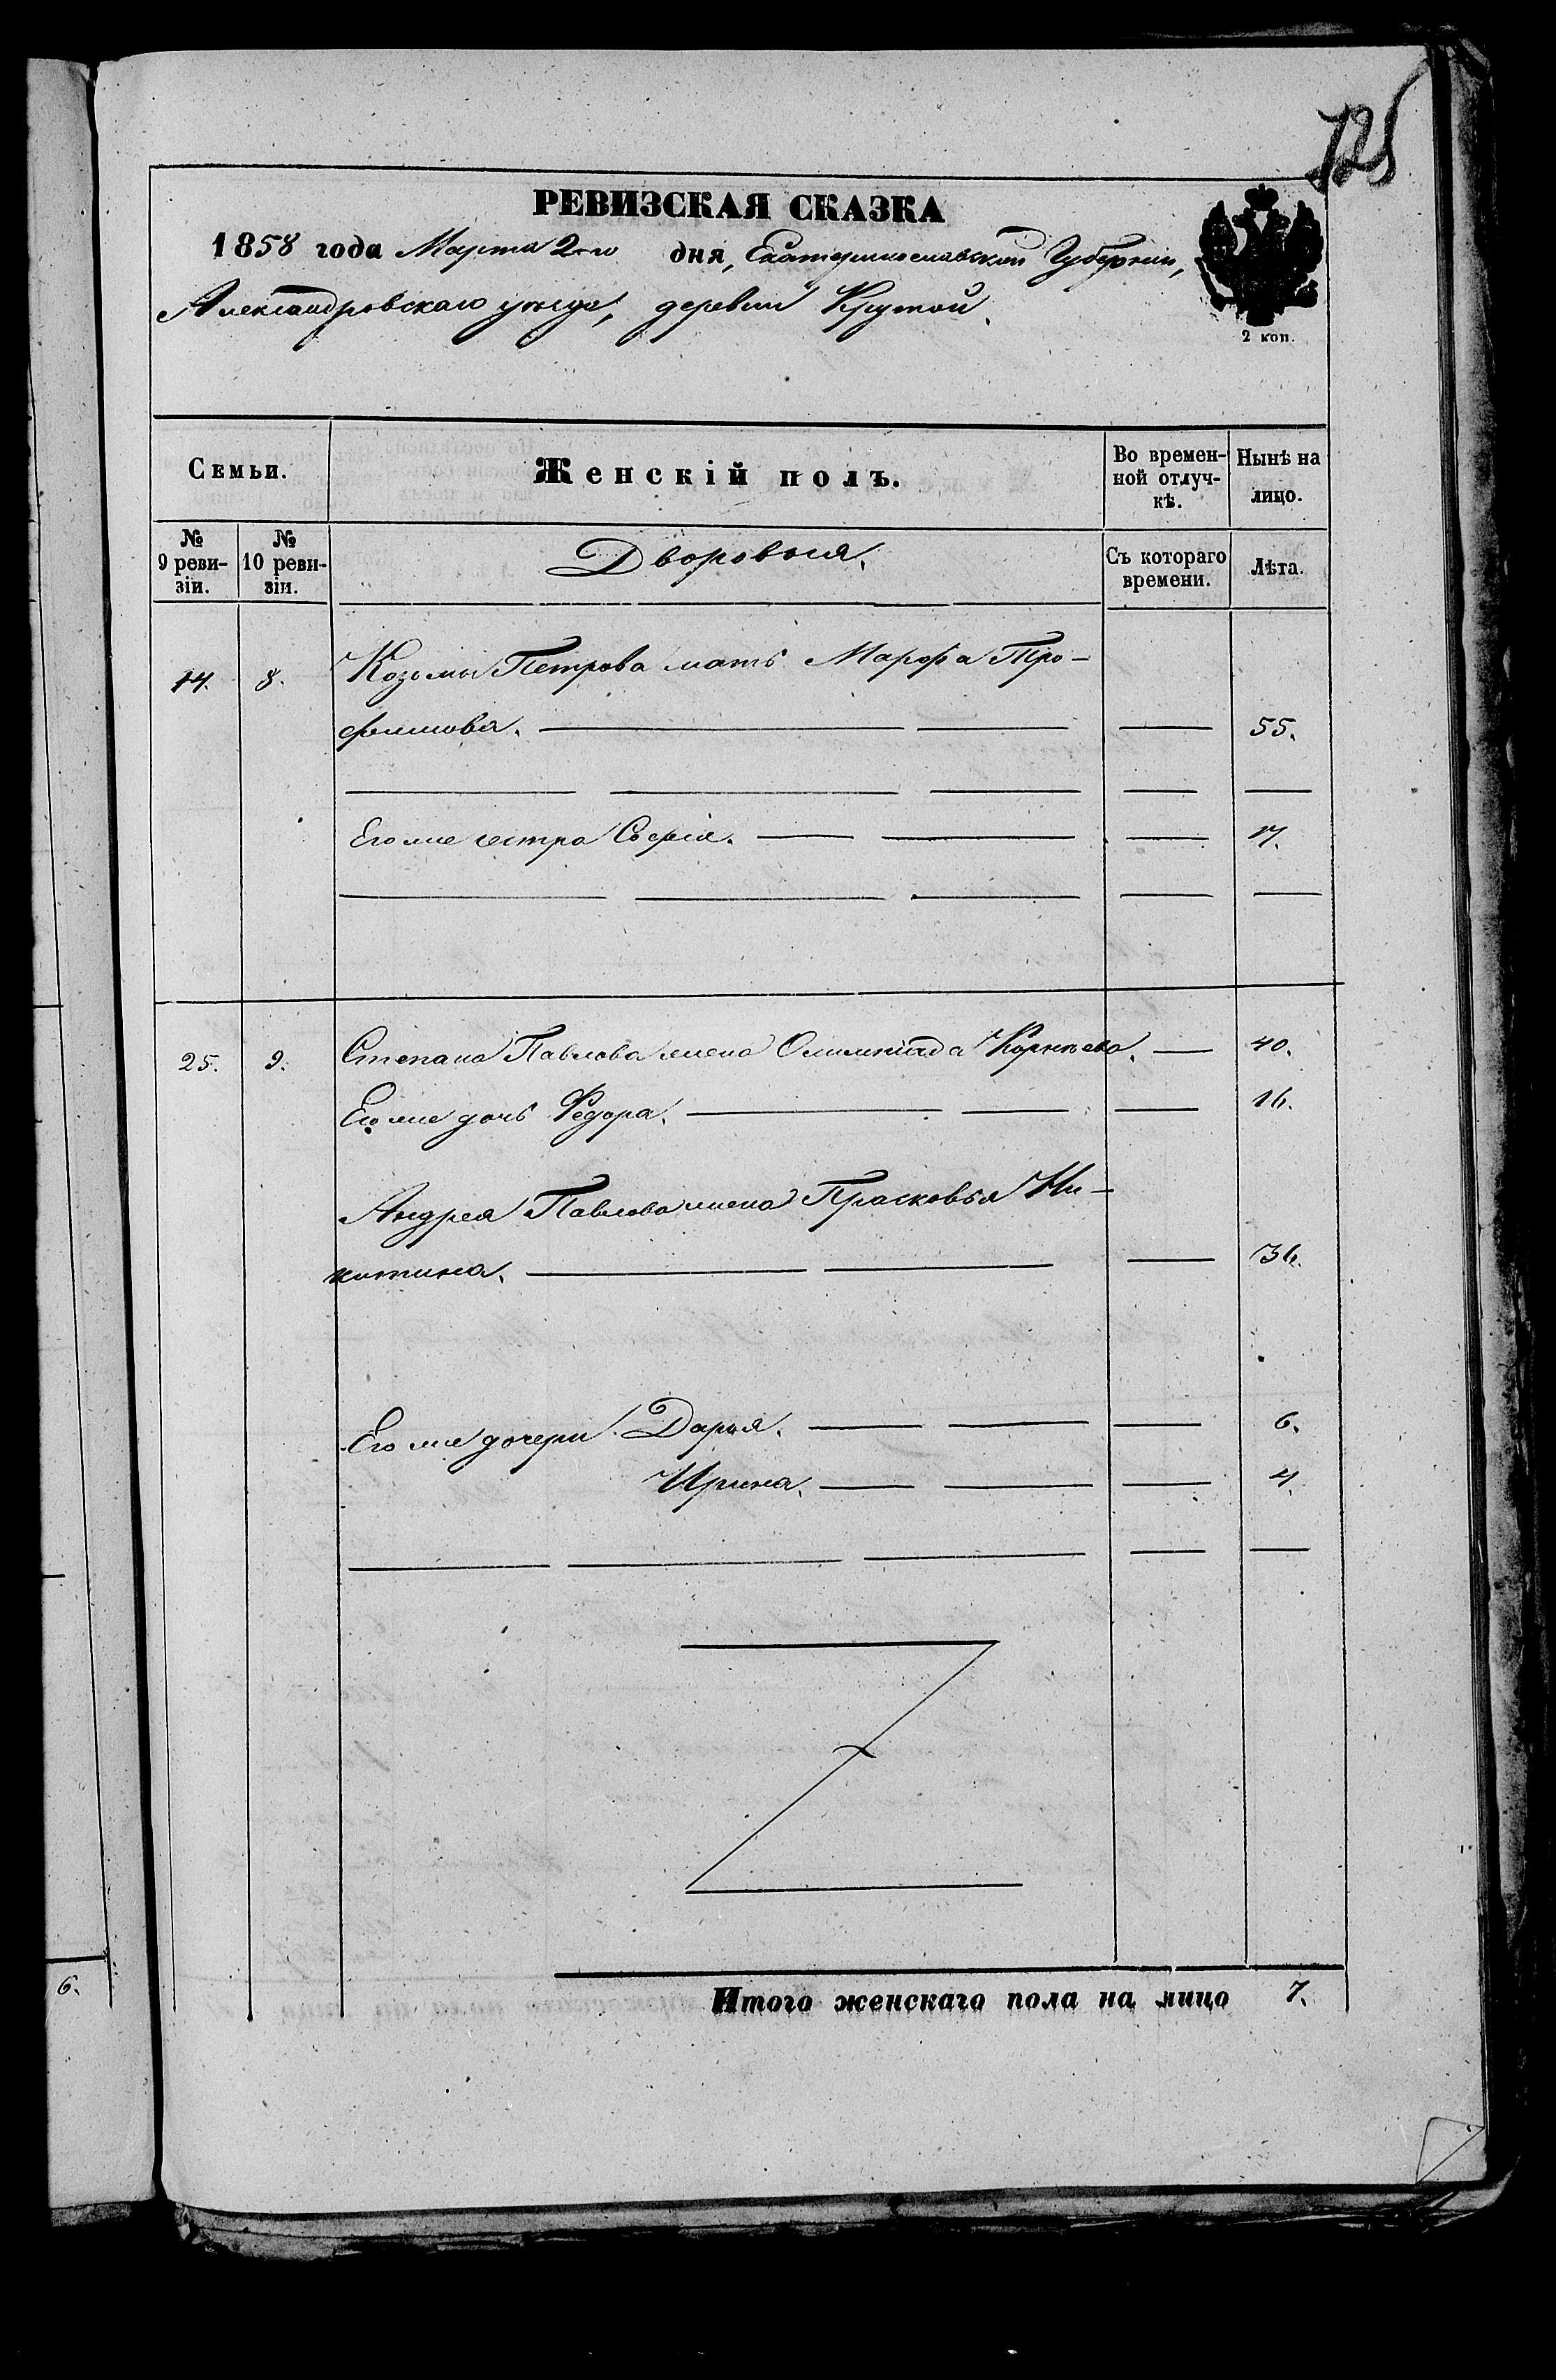 725
РЕВИЗСКАЯ СКАЗКА
1858 года Марта 2го дня, Екатеринославской Губернiи,
Александровскаго уѣзда, деревни Крутой.
2 коп.
Семьи. Женскій полъ. Во времен-ной отлуч-кѣ. Нынѣ на лицо.
№ 9 реви-зіи. № 10 реви-зіи. Дворовыя. Съ котораго времени. Лѣта.
14. 8. Козьмы Петрова мать Марфа Тро-
фимова. 55.
Его же сестра Софія. 17.
25. 9. Степана Павлова жена Олимпіада Корнѣева. 40.
Его же дочь Федора. 16.
Андрея Павлова жена Прасковья Ни-
китина. 36.
Его же дочери Дарья. 6.
Ирина. 4.
Итого женскаго пола на лицо 7.
6.